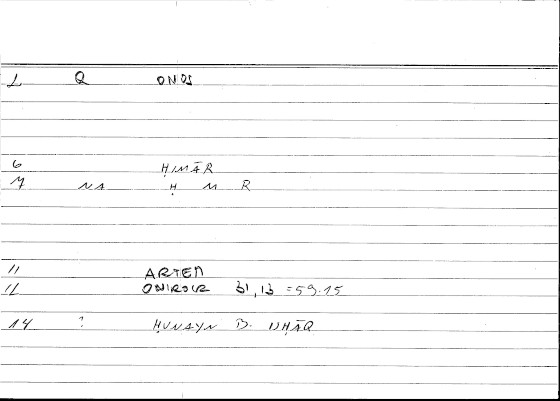 1 Q ONOS
6 ḤIMĀR
7 NA Ḥ M R
11 ARTEM
12 ONIROCR 31,13 = 59.15
14 ? ḤUNAYN B. ISḤĀQ